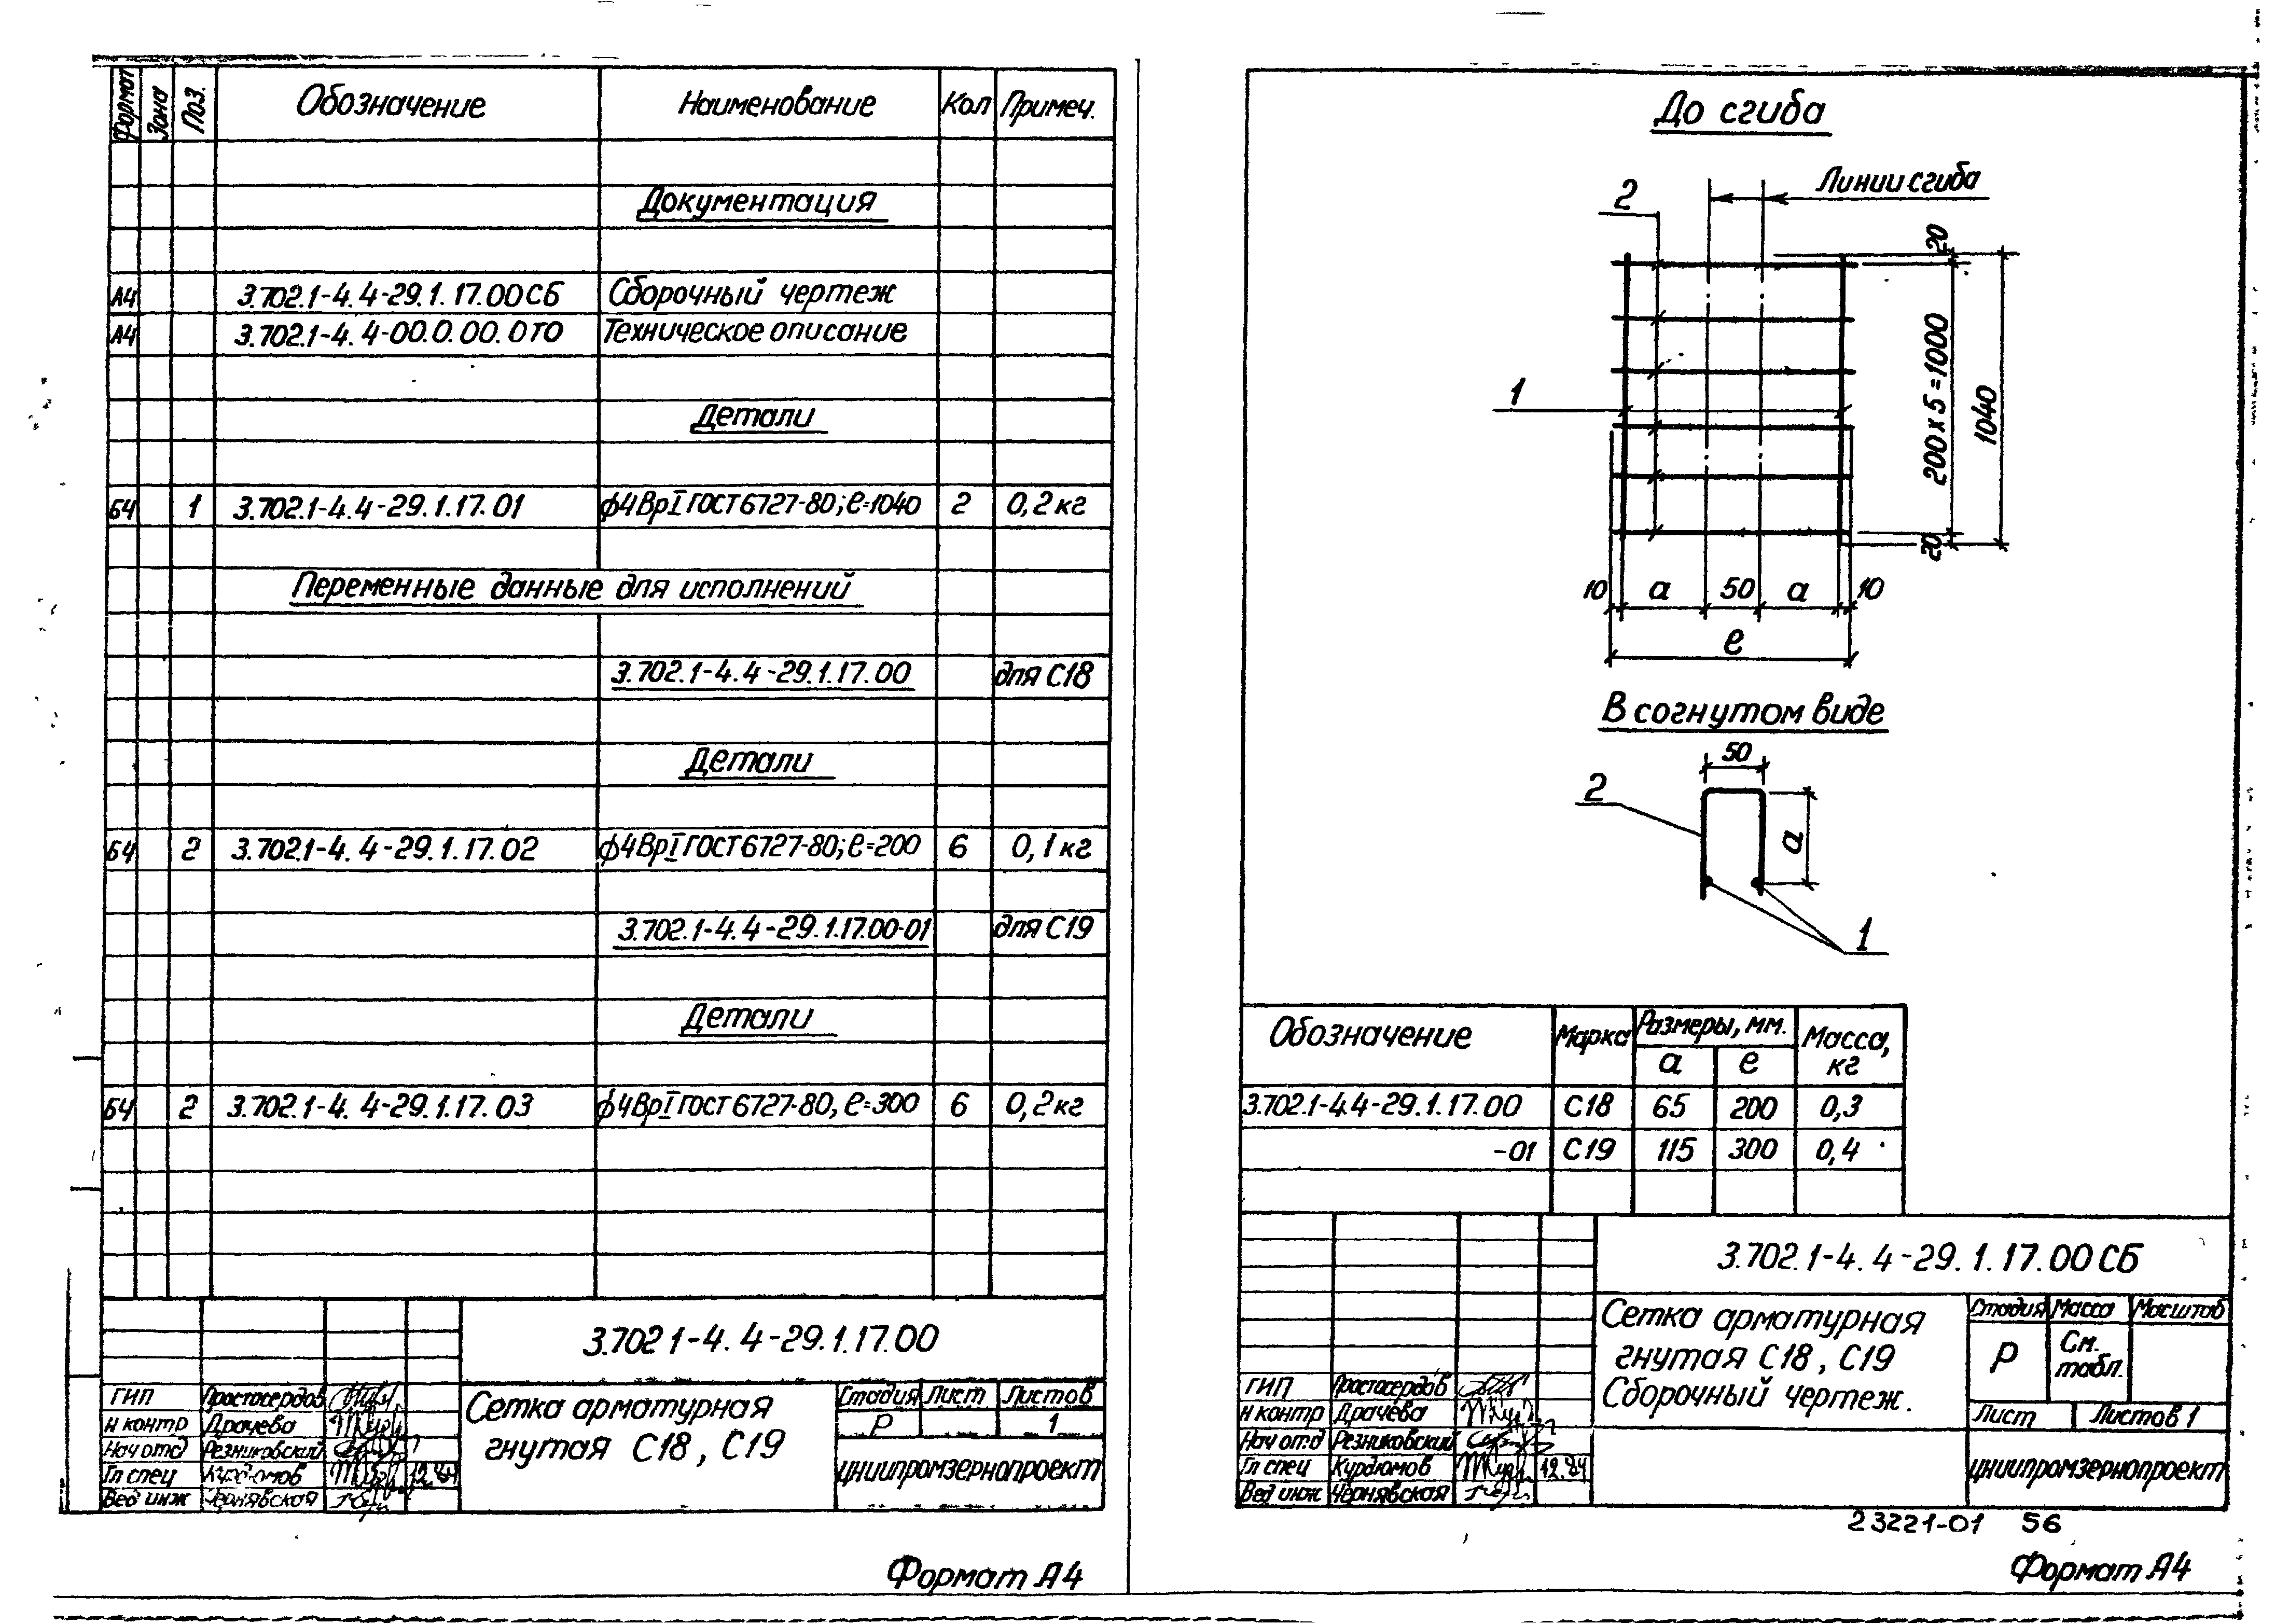 Формат Зона Поз. Обозначение Наименование Кол Примеч.
Документация
А4 3.702.1-4.4-29.1.17.00СБ Сборочный чертеж
А4 3.702.1-4.4-00.0.00.0ТО Техническое описание
Детали
Б4 1 3.702.1-4.4-29.1.17.01 ϕ4ВрI ГОСТ 6727-80; ℓ=1040 2 0,2 кг
Переменные данные для исполнений
3.702.1-4.4-29.1.17.00 для С18
Детали
Б4 2 3.702.1-4.4-29.1.17.02 ϕ4ВрI ГОСТ 6727-80; ℓ=200 6 0,1 кг
3.702.1-4.4-29.1.17.00-01 для С19
Детали
Б4 2 3.702.1-4.4-29.1.17.03 ϕ4ВрI ГОСТ 6727-80, ℓ=300 6 0,2 кг
3.702 1-4.4-29.1.17.00
ГИП Простосердов
Н контр Драчева
Нач отд Резниковский
Гл спец Курдюмов 12.84
Вед инж Чернявская
Сетка арматурная
гнутая С18, С19
Стадия Лист Листов
Р 1
ЦНИИПРОМЗЕРНОПРОЕКТ
Формат А4
До сгиба
Линии сгиба
2
1
20
200х5=1000
1040
20
10 а 50 а 10
ℓ
В согнутом виде
50
2
а
1
Обозначение Марка Размеры, мм. Масса, кг
а ℓ
3.702.1-4.4-29.1.17.00 С18 65 200 0,3
-01 С19 115 300 0,4
3.702.1-4.4-29.1.17.00 СБ
Сетка арматурная
гнутая С18, С19
Сборочный чертеж.
Стадия Масса Масштаб
Р См. табл.
Лист Листов 1
ГИП Простосердов
Н контр Драчева
Нач отд Резниковский
Гл спец Курдюмов 12.84
Вед инж Чернявская
ЦНИИПРОМЗЕРНОПРОЕКТ
23221-01 56
Формат А4